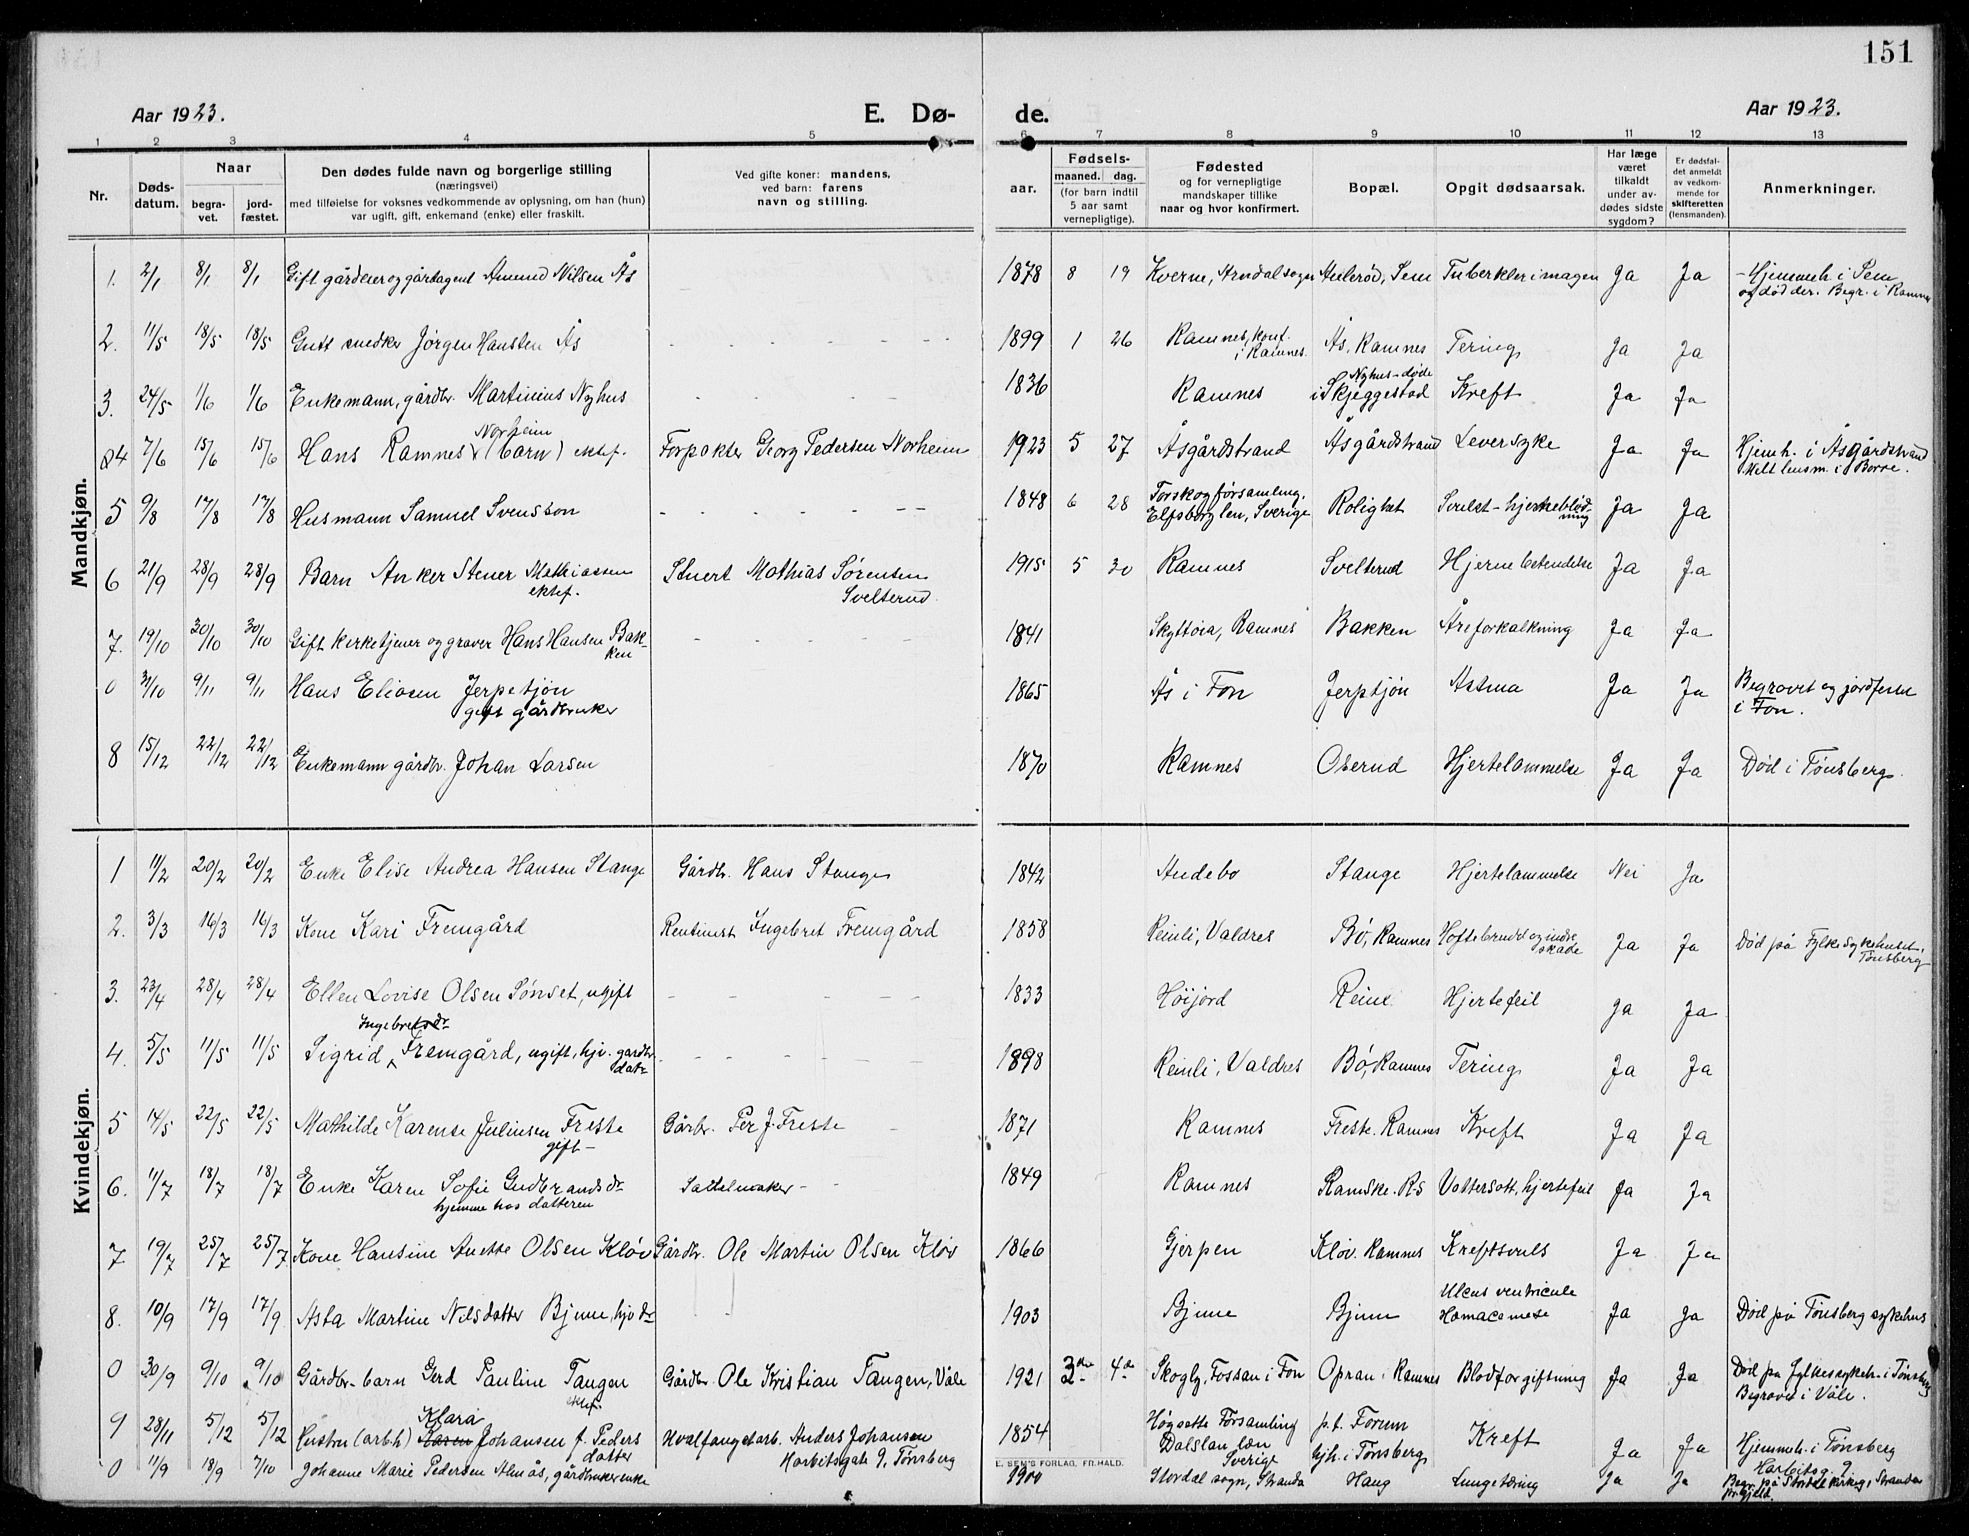 151
Aar 1923. E. Dø- de. Aar 1923.
1 2 3 4 5 6 7 8 9 10 11 12 13
Nr.
Døds-
datum.
Naar
begra-
vet.
jord-
fæstet.
Den dødes fulde navn og borgerlige stilling
(næringsvei)
med tilføielse for voksnes vedkommende av oplysning, om han (hun)
var ugift, gift, enkemand (enke) eller fraskilt.
Ved gifte koner: mandens,
ved barn: farens
navn og stilling.
aar.
Fødsels-
maaned. dag.
(for barn indtil
5 aar samt
vernepligtige).
Fødested
og for vernepligtige
mandskaper tillike
naar og hvor konfirmert.
Bopæl.
Opgit dødsaarsak.
Har læge
været
tilkaldt
under av-
dødes sidste
sygdom?
Er dødsfal-
det anmeldt
av vedkom-
mende for
skifteretten
(lensmanden).
Anmerkninger.
Mandkjøn.
1. 2/1 8/1 8/1 Gift gårdeier og gårdagent Amund Nilsen Ås 1878 8 19 Kverne, Arndal sogn Aulerød, Sem Tuberkler i magen Ja Ja - Hjemmeh. i Sem
og død der. Begr. i Ramnes
2. 11/5 18/5 18/5 Gutt snedker Jørgen Hansten Ås - - - - - - 1899 1 26 Ramnes, konf.
i Ramnes. Ås, Ramnes Tering Ja Ja
3. 24/5 1/6 1/6 Enkemann, gårdbr. Martinius Nyhus - - - - 1836 Ramnes Nyhus - døde
i Skjeggestad Kreft Ja Ja
4 7/6 15/6 15/6 Hans Ramnes Norheim (barn) ektef. Forpakter Georg Pedersen Norheim 1923 5 27 Åsgårdstrand Åsgårdstrand Leversyke Ja Ja Hjemh. i Åsgårdstrand
Melt lensm. i Borre.
5 9/8 17/8 17/8 Husmann Samuel Svensson - - - - - - 1848 6 28 Torskog førsamling,
Elfsborg len, Sverige Rolighet Svulst - hjerneblød-
ning Ja Ja
6 21/9 28/9 28/9 Barn Anker Stener Mathiassen
ektef. Stuert Mathias Sørensen
Svelterud. 1915 5 30 Ramnes Svelterud Hjernebetendelse Ja Ja
7. 19/10 30/10 30/10 Gift kirketjener og graver Hans Hansen Bak-
ken - - - - 1841 Ramnes Bakken Åreforkalkning Ja Ja
0 31/10 9/11 9/11 Hans Eliasen Jerpetjøn
gift gårdbruker 1865 Ås i Fon Jerptjøn Astma Ja Ja Begravet og jordfestet
i Fon.
8 15/12 22/12 22/12 Enkemann gårdbr. Johan Larsen 1870 Ramnes Oserud Hjertelammelse Ja Ja Død i Tønsberg.
Kvindekjøn.
1 11/2 20/2 20/2 Enke Elise Andrea Hansen Stange Gårdbr. Hans Stange 1842 Andebo Stange Hjertelammelse Nei Ja
2. 3/3 16/3 16/3 Kone Kari Fremgård Rentinist Ingebret Fremgård 1858 Reinli, Valdres Bø, Ramnes Hoftebrudd og indre
skade Ja Ja Død på Fylkesykehuset,
Tønsberg
3. 23/4 28/4 28/4 Ellen Lovise Olsen Sønset, ugift - - - - - 1833 Høijord Reine Hjertefeil Ja Ja
4. 5/5 11/5 11/5 Sigrid Ingebretsdr Fremgård, ugift, hjv. gardbr.
datr - - - - - 1898 Reinli, Valdres Bø, Ramnes Tering Ja Ja
5 14/5 22/5 22/5 Mathilde Karense Juliusen Freste
gift - Gårbr. Per J. Freste - 1871 Ramnes Freste. Ramnes Kreft Ja Ja
6. 11/7 18/7 18/7 Enke Karen Sofie Gudbrandsdr
hjemme hos datteren Sadelmaker - 1849 Ramnes Ramske. Rs Vattersott, hjertefeil Ja Ja
7 19/7 25/7 25/7 Kone Hansine Anette Olsen Kløv Gårdbr. Ole Martin Olsen Kløv 1866 Gjerpen Kløv. Ramnes Kreftsvuls Ja Ja
8. 10/9 17/9 17/9 Asta Martine Nilsdatter Bjune, hjvdr - - 1903 Bjune Bjune Ulcus ventricule
Hæmacemese Ja Ja Død på Tønsberg sykehus
0 30/9 9/10 9/10 Gårdbr. barn Gerd Pauline Tangen
ektef. Gårdbr. Ole Kristian Tangen, Våle 1921 3de
2- 4de Skogly, Fossan i Fon Opran i Ramnes Blodforgiftning Ja Ja Død på Fylkessykeh. i Tønsberg
Begravet i Våle.
9 28/11 5/12 5/12 Hustru (arbh) Klara Karen Johansen f. Peders
datter Hvalfangstarb. Anders Johansen
Harbitsgate 9, Tønsberg 1854 Høgsette Församling
Dalslan læn
Sverige p.t. Forum
hjh. i Tønsberg Kreft Ja Ja Hjemmeh. i Tønsberg
Harbitsg. 9
E. SEM'S FORLAG, FR.HALD.
0 11/9 18/9 7/10 Johanne Marie Pedersen Almås, gårdbruker enke 1900 Stordal sogn, Stranda Haug Lungetæring Ja Ja Begr. på Stordal kirkeg., Stranda
pr.gjeld.